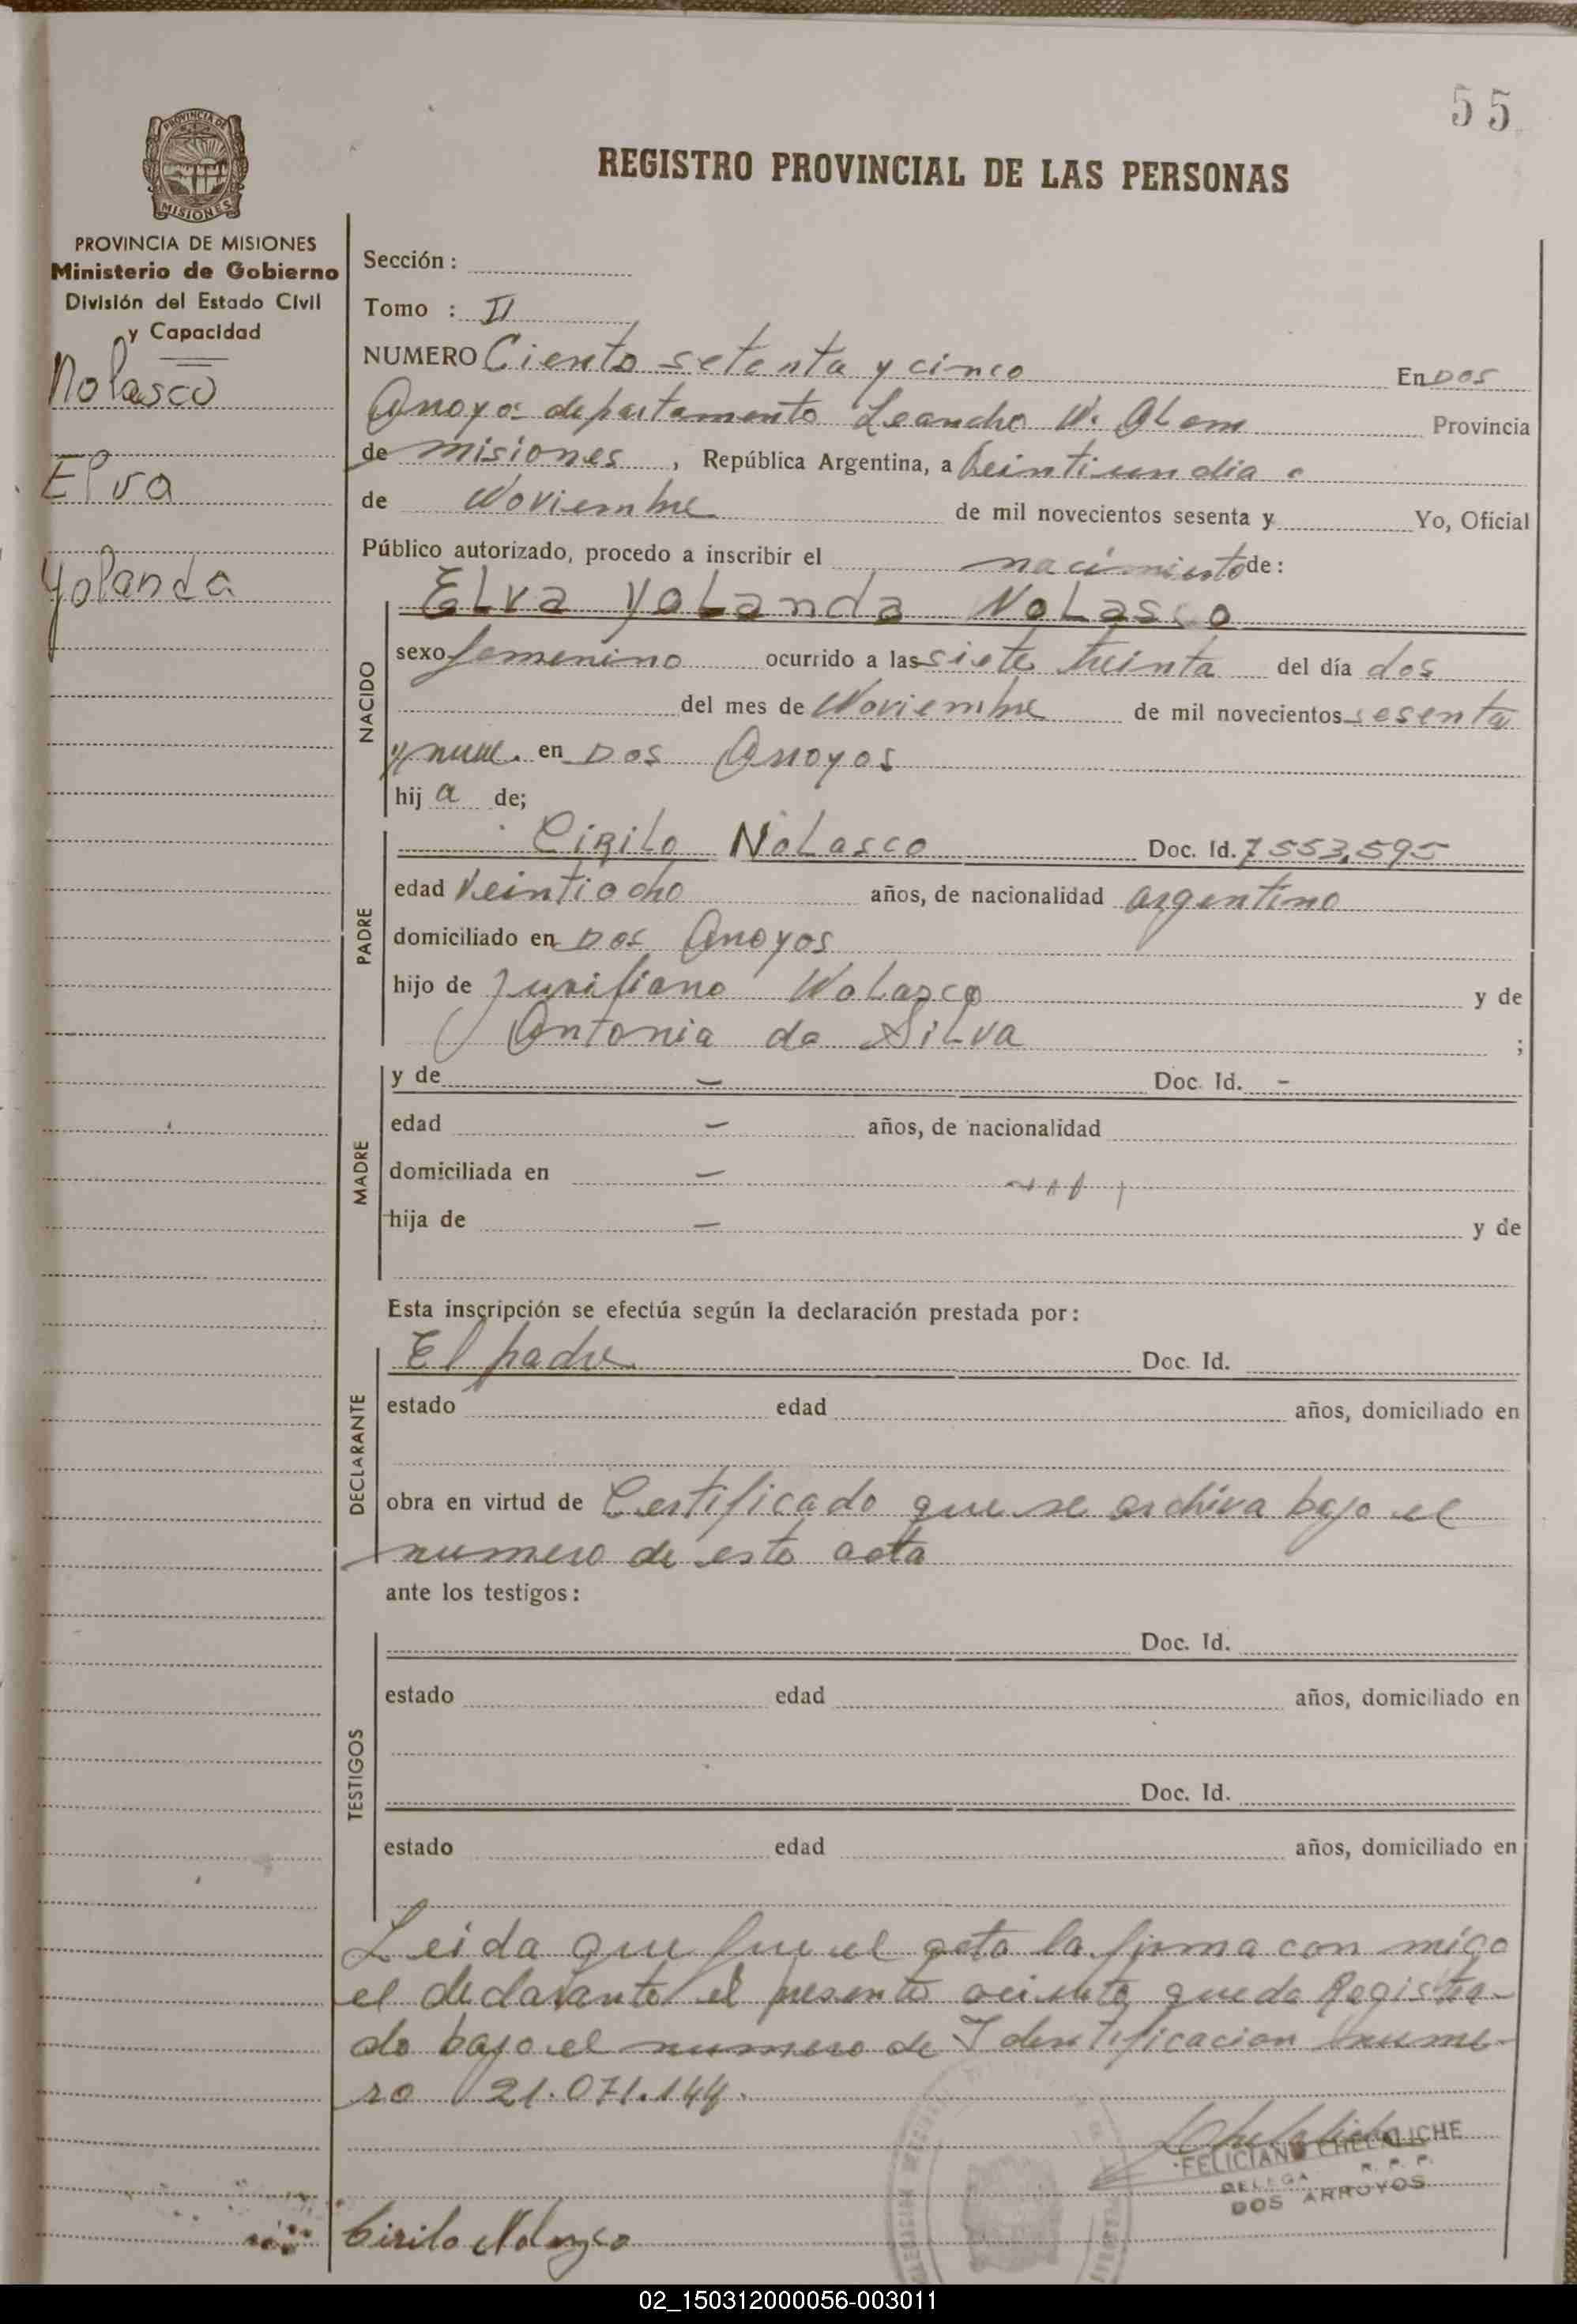 55
PROVINCIA DE
MISIONES
REGISTRO PROVINCIAL DE LAS PERSONAS
PROVINCIA DE MISIONES
Ministerio de Gobierno
División del Estado Civil
y Capacidad
Nolasco
Elva
Yolanda
Sección :
Tomo : II
NUMERO Ciento setenta y cinco En Dos
Arroyos departamento Leandro N. Alem Provincia
de misiones , República Argentina, a Veintiun dia s
de Noviembre de mil novecientos sesenta y Yo, Oficial
Público autorizado, procedo a inscribir el nacimiento de :
NACIDO
Elva Yolanda Nolasco
sexo femenino ocurrido a las siete treinta del día dos
del mes de Noviembre de mil novecientos sesenta
y nueve. en Dos Arroyos
hij a de;
PADRE
Cirilo Nolasco Doc. Id. 7553,595
edad Veintiocho años, de nacionalidad argentino
domiciliado en Dos Arroyos
hijo de Nolasco y de
Antonia da Silva ;
MADRE
y de — Doc. Id. -
edad — años, de nacionalidad
domiciliada en —
hija de — y de
Esta inscripción se efectúa según la declaración prestada por :
DECLARANTE
El padre Doc. Id.
estado edad años, domiciliado en
obra en virtud de Certificado que se archiva bajo el
numero de esta acta
ante los testigos :
TESTIGOS
Doc. Id.
estado edad años, domiciliado en
Doc. Id.
estado edad años, domiciliado en
Leida que fue el acta la firma con migo
el declarante el presente queda Registra-
do bajo el numero de Identificacion nume-
ro 21.071.144.
FELICIANO CHELALICHE
DELEGA R. P. P.
DOS ARROYOS
Cirilo Nolazco
02_150312000056-003011